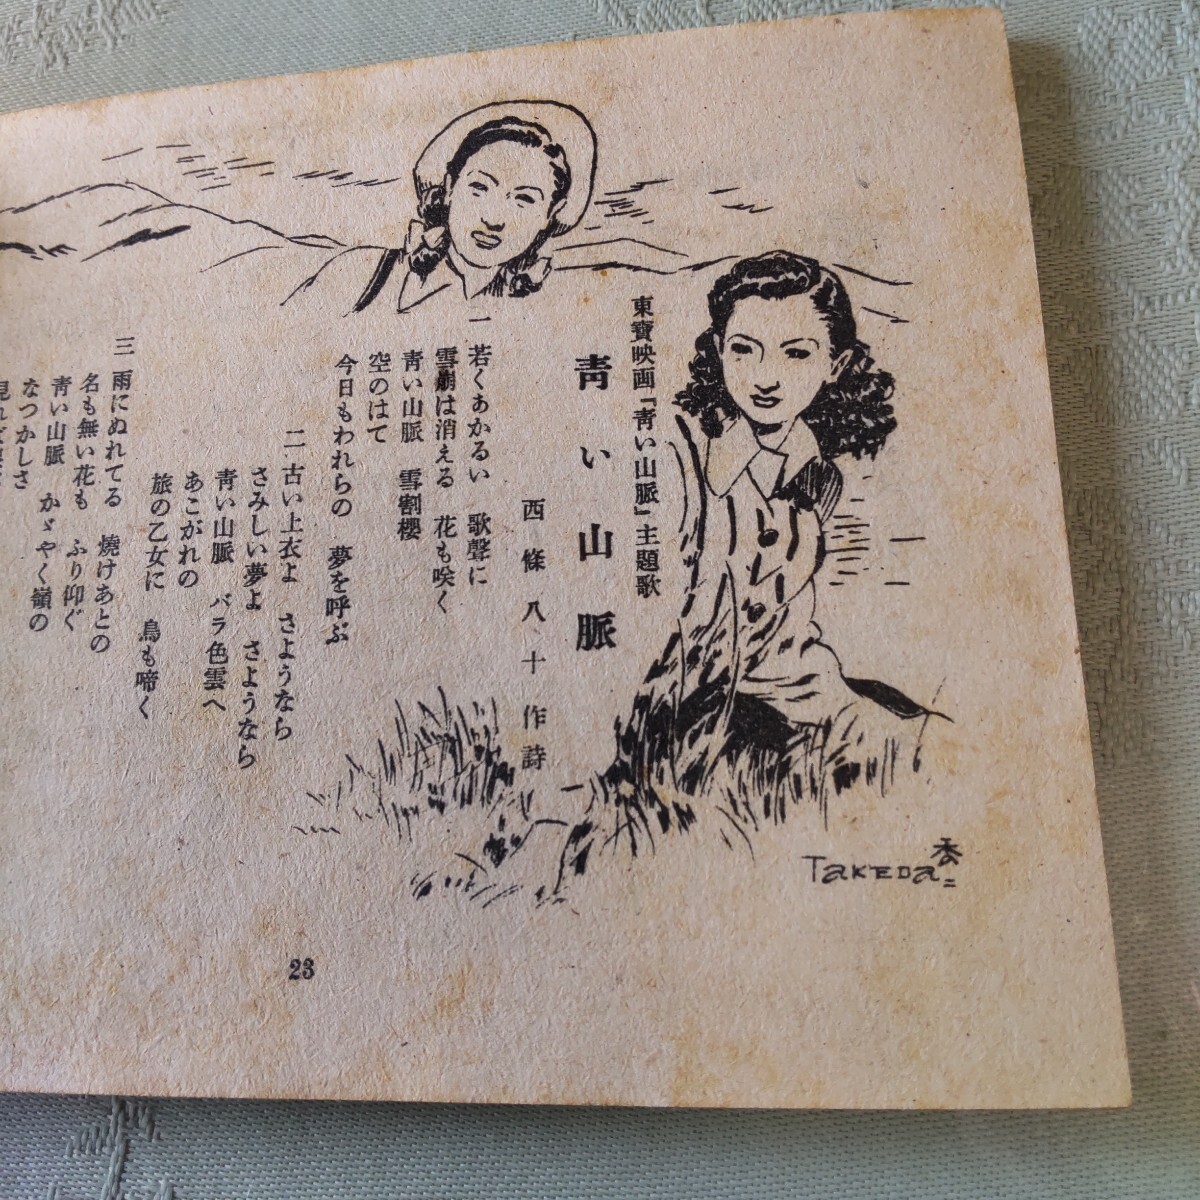 東寳映画「靑い山脈」主題歌
靑い山脈
西條八十作詩
一 若くあかるい 歌聲に
雪崩は消える 花も咲く
靑い山脈 雪割櫻
空のはて
今日もわれらの 夢を呼ぶ
二 古い上衣よ さようなら
さみしい夢よ さようなら
靑い山脈 バラ色雲へ
あこがれの
旅の乙女に 鳥も啼く
三 雨にぬれてる 燒けあとの
名も無い花も ふり仰ぐ
靑い山脈 かゞやく嶺の
なつかしさ
見れば
TAKEDA
23